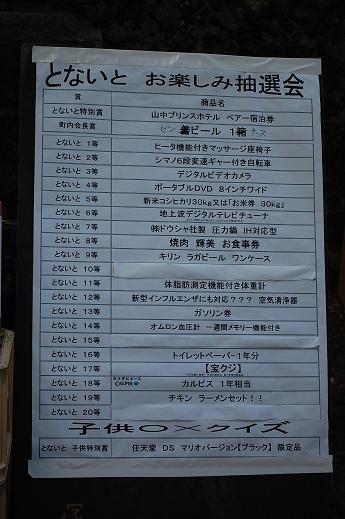 とないと お楽しみ抽選会
賞 商品名
とないと特別賞 山中プリンスホテル ペアー宿泊券
町内会長賞 ビン ビール 1箱 ケース
とないと 1等 ヒータ機能付きマッサージ座椅子
とないと 2等 シマノ6段変速ギャー付き自転車
とないと 3等 デジタルビデオカメラ
とないと 4等 ポータブルDVD 8インチワイド
とないと 5等 新米コシヒカリ30kg又は「お米券 30kg」
とないと 6等 地上波デジタルテレビチューナ
とないと 7等 ㈱ドウシャ社製 圧力鍋 IH対応型
とないと 8等 焼肉 輝美 お食事券
とないと 9等 キリン ラガビール ワンケース
とないと 10等
とないと 11等 体脂肪測定機能付き体重計
とないと 12等 新型インフルエンザにも対応??? 空気清浄器
とないと 13等 ガソリン券
とないと 14等 オムロン血圧計 一週間メモリー機能付き
とないと 15等
とないと 16等 トイレットペーパー1年分
とないと 17等 【宝クジ】
とないと 18等 カラダにピース CALPIS カルピス 1年相当
とないと 19等 チキン ラーメンセット!!
とないと 20等
子供〇×クイズ
とないと 子供特別賞 任天堂 DS マリオバージョン【ブラック】 限定品